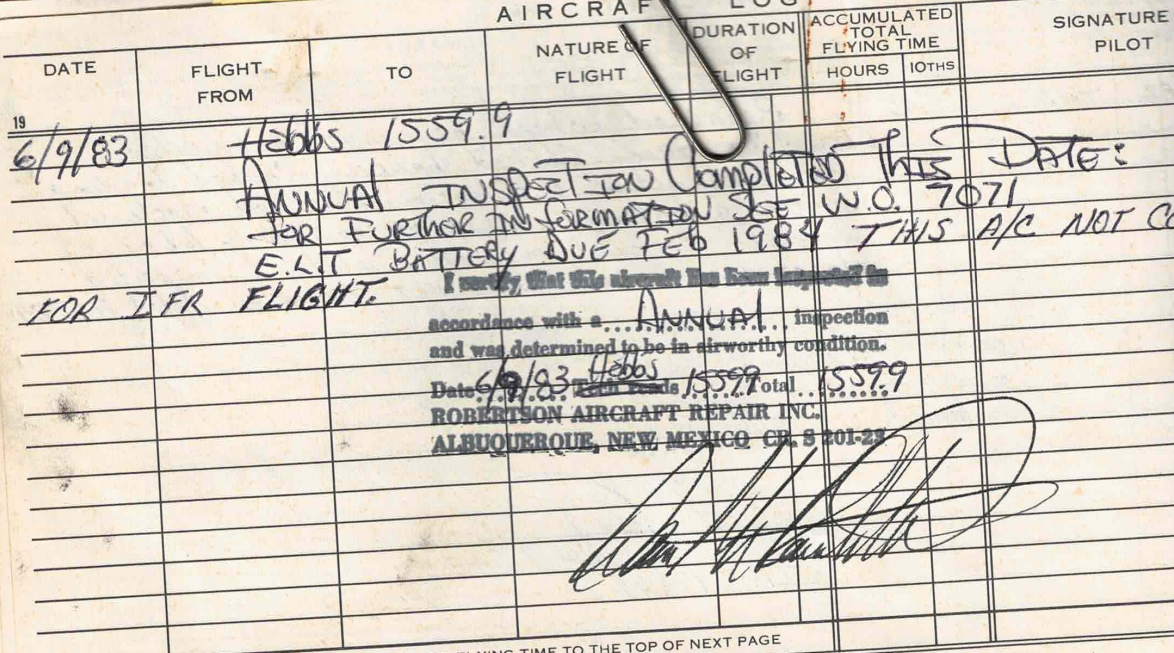 AIRCRAF LOG
DATE
FLIGHT FROM
TO
NATURE OF FLIGHT
DURATION OF FLIGHT
ACCUMULATED TOTAL FLYING TIME
HOURS 10THS
SIGNATURE PILOT
19
6/9/83 Hebbs 1559.9
ANNUAL INSPECTION Completed This DATE:
for FURTHER INFORMATION SEE W.O. 7071
E.L.T BATTERY DUE FEB 1984 THIS A/C NOT C
FOR IFR FLIGHT.
I certify, that this aircraft has been inspected in
accordance with a....ANNUAL.... inspection
and was determined to be in airworthy condition.
Date 6/9/83 Hebbs Tech reads 1559.9 Total 1559.9
ROBERTSON AIRCRAFT REPAIR INC.
ALBUQUERQUE, NEW MEXICO CR. S 201-23
YING TIME TO THE TOP OF NEXT PAGE